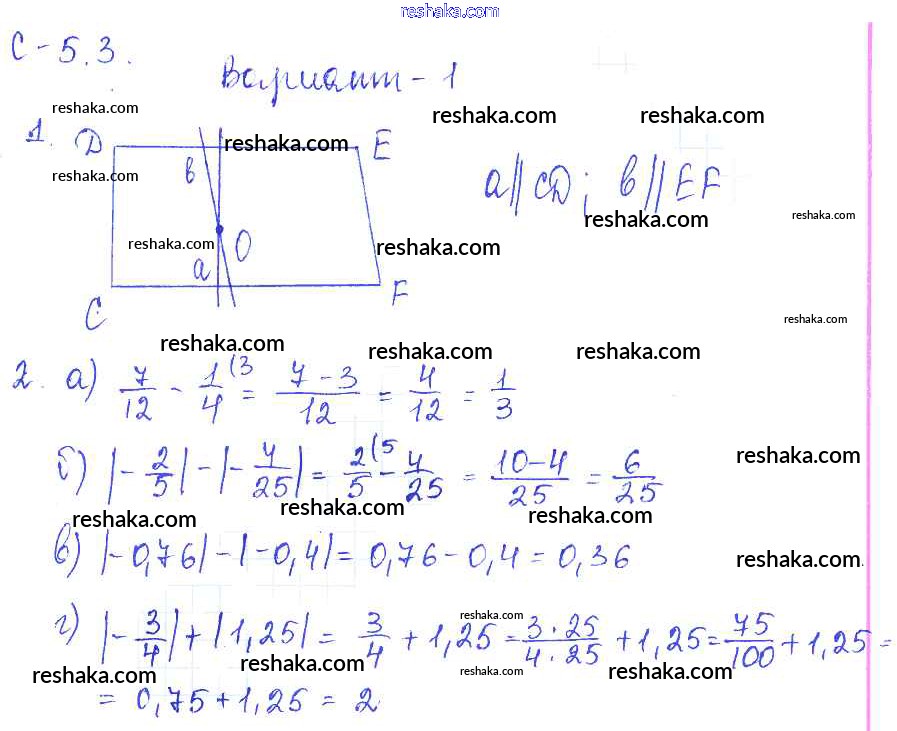 reshaka.com
С-5.3.
Вариант-1
reshaka.com reshaka.com reshaka.com
1. D reshaka.com E
reshaka.com в a∥CD; в∥EF
reshaka.com reshaka.com
reshaka.com O reshaka.com
a
C F
reshaka.com
reshaka.com reshaka.com reshaka.com
2. а) 7/12 - 1/4 (3 = 7-3/12 = 4/12 = 1/3
б) |-2/5| - |-4/25| = 2/5 (5 - 4/25 = 10-4/25 = 6/25
reshaka.com
reshaka.com reshaka.com reshaka.com
в) |-0,76| - |-0,4| = 0,76 - 0,4 = 0,36
reshaka.com
г) |-3/4| + |1,25| = 3/4 + 1,25 = 3·25/4·25 + 1,25 = 75/100 + 1,25 =
reshaka.com
reshaka.com reshaka.com reshaka.com reshaka.com
= 0,75 + 1,25 = 2